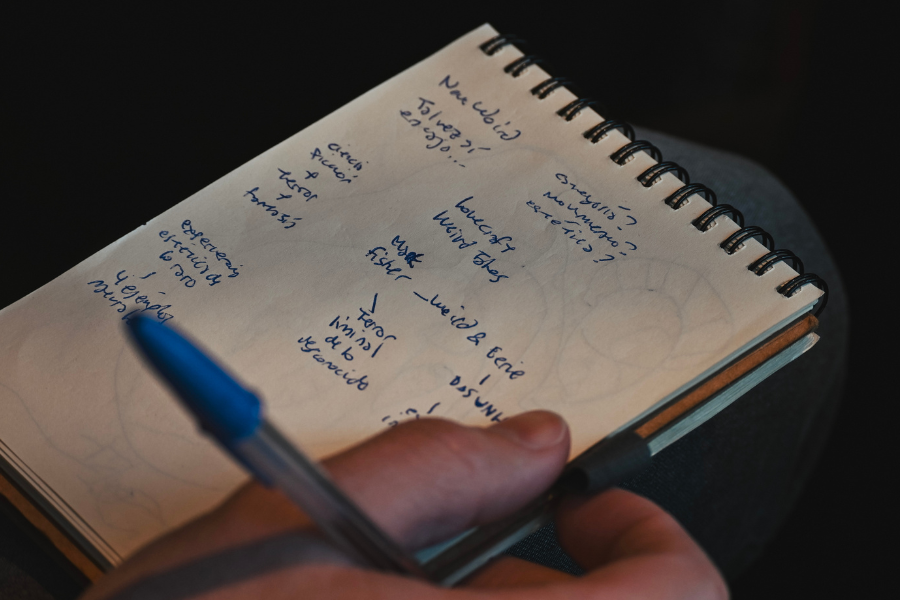 New Weird
Tal vez sí
encajo...
ciencia
ficción
+
terror
+
fantasía
¿categoría?
movimiento?
estética?
Lovecraft
Weird Tales
Mark
Fisher
— Weird & Eerie
Terror
liminal
de lo
desconocido
experiencia
estética de
lo raro
4 ejemplos